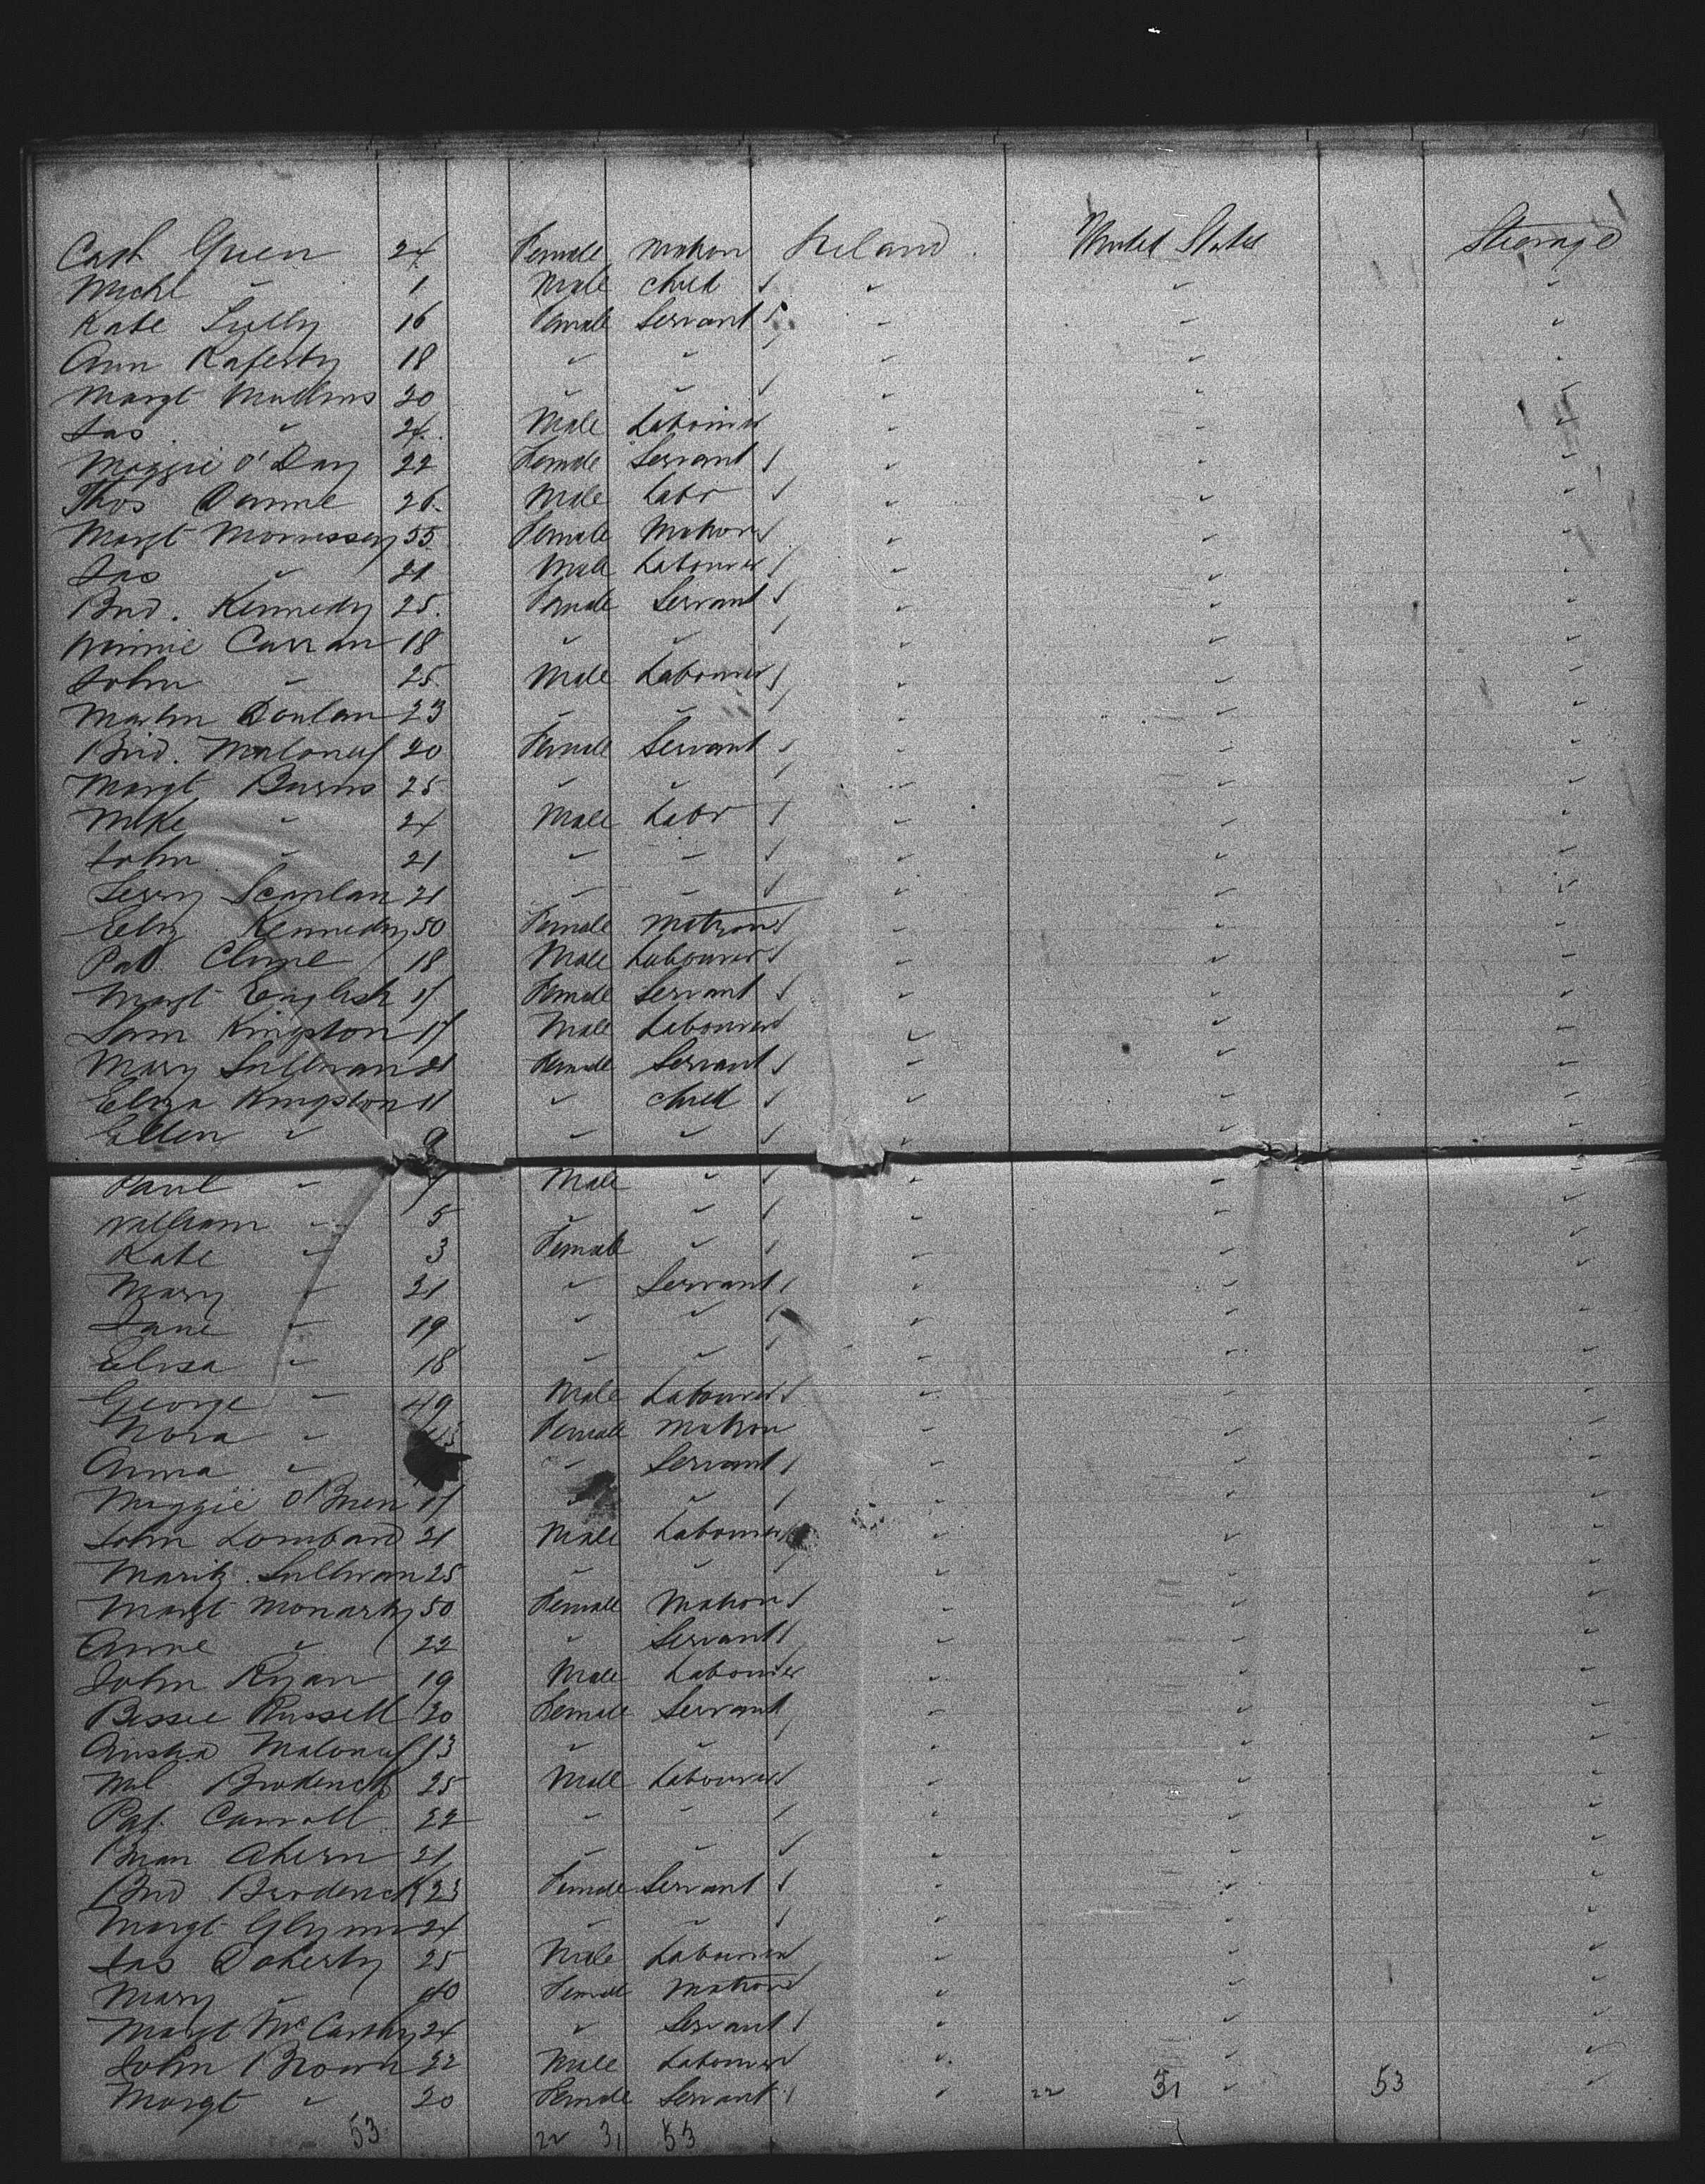 Cath Green 24 Female Matron Ireland United States Steerage
Michl " 1 Male Child " " "
Kate Lully 16 Female Servant " " "
Ann Raferty 18 " " " " "
Margt Mullins 20 " " " " "
Jas " 24 Male Labourer " " "
Maggie O'Day 22 Female Servant " " "
Thos Dunne 26 Male Labr " " "
Margt Morrissey 55 Female Matron " " "
Jas " 21 Male Labourer " " "
Brid. Kennedy 25 Female Servant " " "
Winnie Curran 18 " " " " "
John " 25 Male Labourer " " "
Martin Donlan 23 " " " " "
Brid. Maloney 20 Female Servant " " "
Margt Burns 25 " " " " "
Mike " 24 Male Labr " " "
John " 21 " " " " "
Jerry Scanlan 21 " " " " "
Eliz Kennedy 50 Female Matron " " "
Pat Clune 18 Male Labourer " " "
Margt English 17 Female Servant " " "
Sam Kingston 17 Male Labourer " " "
Mary Sullivan 21 Female Servant " " "
Eliza Kingston 11 " Child " " "
Ellen " 9 " " " " "
Paul " 7 Male " " " "
William " 5 " " " " "
Kate " 3 Female " " " "
Mary " 21 " Servant " " "
Jane " 19 " " " " "
Elisa " 18 " " " " "
George " 49 Male Labourer " " "
Nora " Female Matron " " "
Anna " " Servant " " "
Maggie O'Brien 17 " " " " "
John Lombard 21 Male Labourer " " "
Sullivan 25 " " " " "
Margt Moriarty 50 Female Matron " " "
Anne " 22 " Servant " " "
John Ryan 19 Male Labourer " " "
Bessie Russell 20 Female Servant " " "
Maloney 13 " " " " "
Ml Broderick 25 Male Labourer " " "
Pat. Carroll 22 " " " " "
Brian Ahern 21 " " " " "
Brid Broderick 23 Female Servant " " "
Margt Glynn 24 " " " " "
Jas Doherty 25 Male Labourer " " "
Mary " 40 Female Matron " " "
Margt McCarthy 24 " Servant " " "
John Brown 22 Male Labourer " " "
Margt " 20 Female Servant " 22 31 " 53 "
53 22 31 53